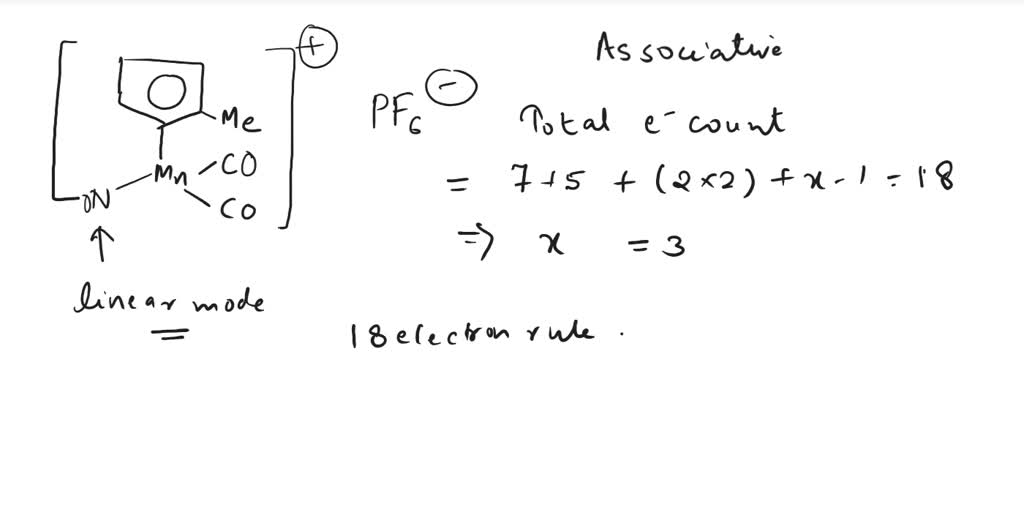 Associative
+
Me
Mn
CO
CO
ON
PF6 -
Total e- count
= 7+5 + (2×2) + x - 1 = 18
⇒ x = 3
linear mode
18 electron rule .